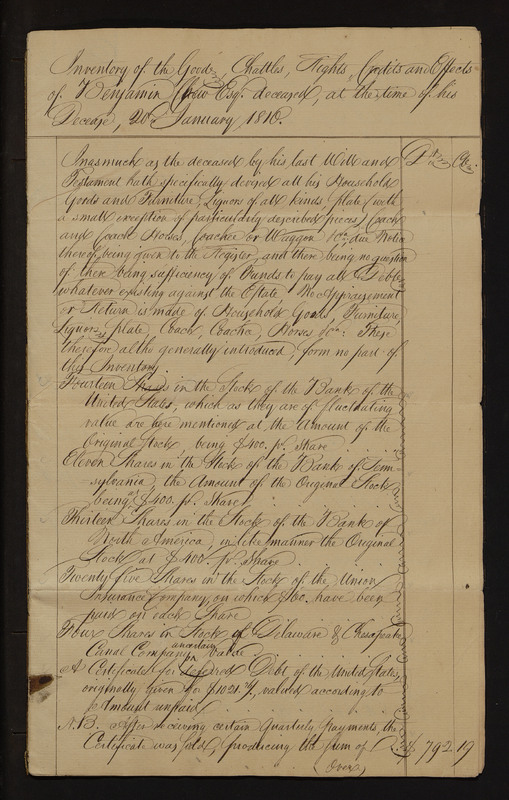 Inventory of the Goods, Chattles, Rights, Credits and Effects
of Benjamin Chew Esqr. deceased, at the time of his
Decease, 20th January 1810.
Inasmuch as the deceased by his last Will and
Testament hath specifically devised all his Household
Goods and Furniture, Liquors of all kinds, plate (with
a small exception of particularly described pieces) Coach
and Coach Horses, Coachee or Waggon &ca. due Notice
thereof being given to the Register, and there being no question
of there being sufficiency of Funds to pay all Debts
whatever existing against the Estate No Appraisement
or Return is made of Household Goods, Furniture,
Liquors, plate, Coach, Coachee, Horses &ca: These
therefore altho generally introduced form no part of
this Inventory.
Fourteen Shares in the Stock of the Bank of the
United States, which as they are of fluctuating
value are here mentioned at the Amount of the
Original Stock, being $400. pr. Share
Eleven Shares in the Stock of the Bank of Penn-
sylvania, the Amount of the Original Stock
being at $400. pr. Share
Thirteen Shares in the Stock of the Bank of
North America, in like manner the Original
Stock at $400. pr. Share
Twenty five Shares in the Stock of the Union
Insurance Company, on which $60. have been
paid on each Share
Four Shares in Stock of Delaware & Chesapeake
Canal Company, uncertain Value
A Certificate for deferred Debt of the United States,
originally given for $1021. valued according to
Amount unpaid
N.B. After receiving certain Quarterly Payments, the
Certificate was sold, producing the Sum of 792.19
(over)